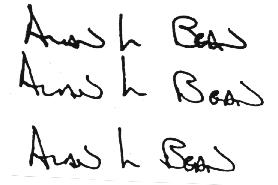 Alan L Bean
Alan L Bean
Alan L Bean